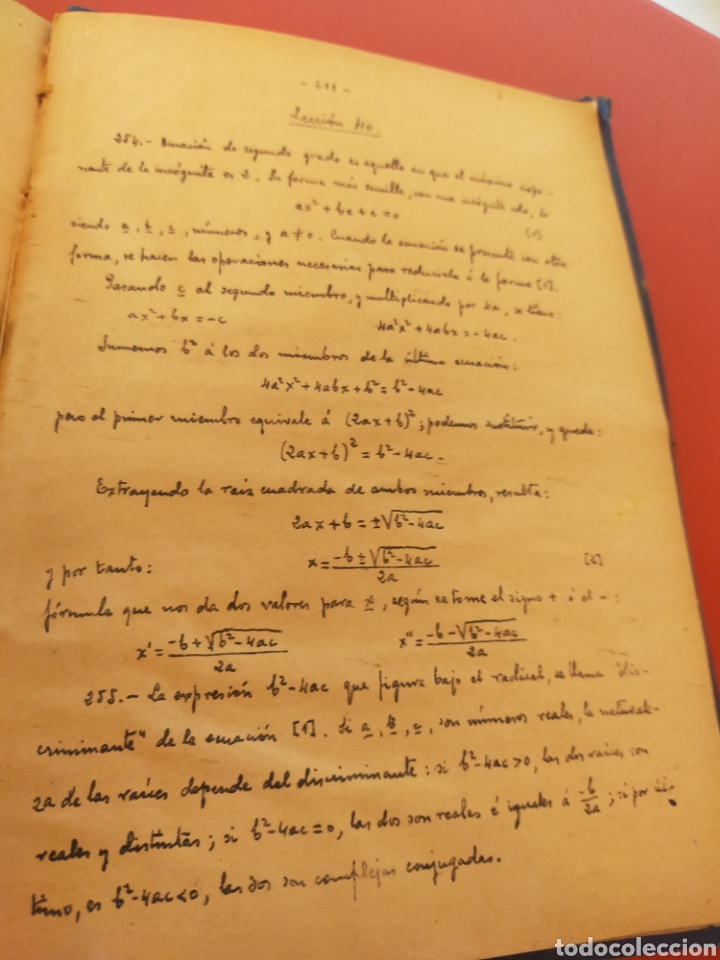 - 211 -
Lección 40.
254.- Ecuación de segundo grado es aquella en que el máximo expo-
nente de la incógnita es 2. Su forma más sencilla, con una incógnita sola, es
ax² + bx + c = 0 [1]
siendo a, b, c, números, y a ≠ 0. Cuando la ecuación se presenta con otra
forma, se hacen las operaciones necesarias para reducirla á la forma [1].
Pasando c al segundo miembro, y multiplicando por 4a, se tiene:
ax² + bx = -c 4a²x² + 4abx = -4ac.
Sumemos b² á los dos miembros de la última ecuación:
4a²x² + 4abx + b² = b² - 4ac
pero el primer miembro equivale á (2ax + b)²; podemos sustituir, y queda:
(2ax + b)² = b² - 4ac.
Extrayendo la raiz cuadrada de ambos miembros, resulta:
2ax + b = ±√(b² - 4ac)
y por tanto: x = (-b ± √(b² - 4ac)) / 2a [2]
fórmula que nos da dos valores para x, según se tome el signo + ó el -:
x' = (-b + √(b² - 4ac)) / 2a x" = (-b - √(b² - 4ac)) / 2a
255.- La expresión b² - 4ac que figura bajo el radical, se llama "dis-
criminante" de la ecuación [1]. Si a, b, c, son números reales, la naturale-
za de las raíces depende del discriminante: si b² - 4ac > 0, las dos raíces son
reales y distintas; si b² - 4ac = 0, las dos son reales é iguales á -b/2a; si por úl-
timo, es b² - 4ac < 0, las dos son complejas conjugadas.
todocoleccion